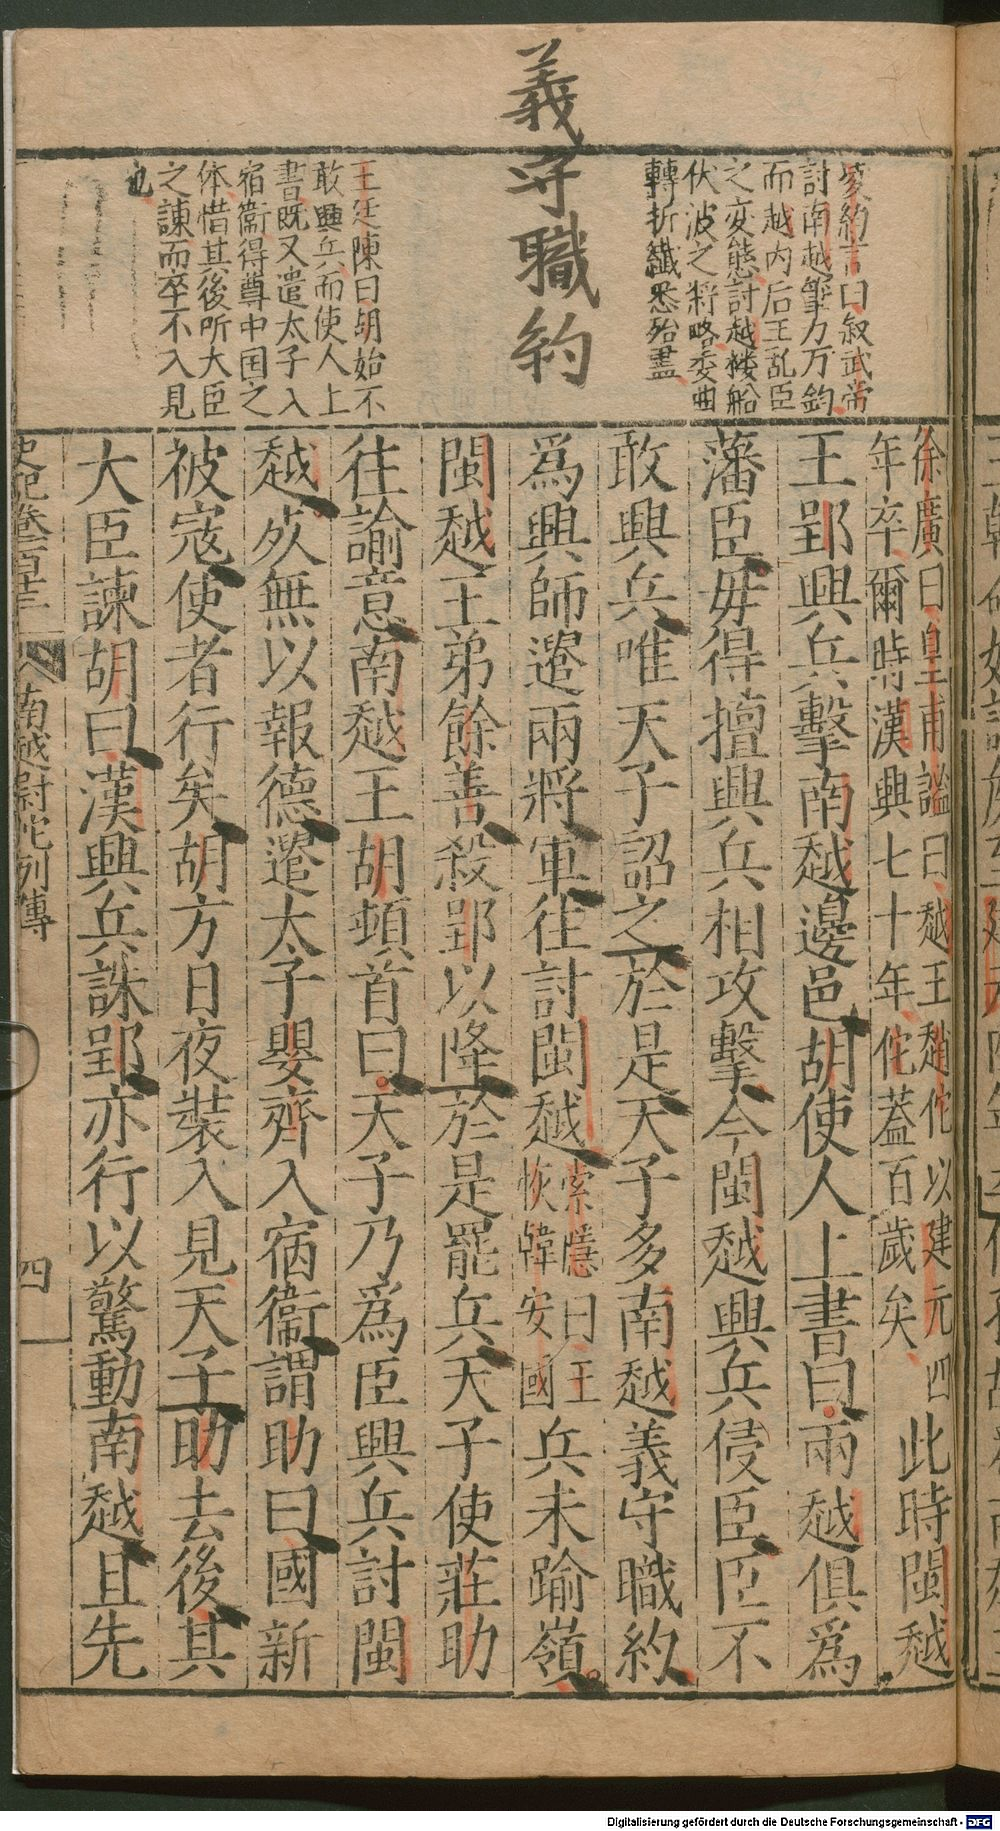 義守職約
凌約言曰叙武帝
討南越筆力万鈞
而越內后王亂臣
之変態討越楼船
伏波之將略委曲
轉折纎悉殆盡
王廷陳曰胡始不
敢興兵而使人上
書既又遣太子入
宿衞得尊中国之
体惜其後听大臣
之諫而卒不入見
也
徐廣曰皇甫謐曰越王趙佗以建元四
年卒爾時漢興七十年佗蓋百歲矣
此時閩越
王郢興兵擊南越邊邑胡使人上書曰兩越俱爲
藩臣毋得擅興兵相攻擊今閩越興兵侵臣臣不
敢興兵唯天子詔之於是天子多南越義守職約
爲興師遣兩將軍往討閩越
索隱曰王
恢韓安國
兵未踰嶺
閩越王弟餘善殺郢以降於是罷兵天子使莊助
往諭意南越王胡頓首曰天子乃爲臣興兵討閩
越死無以報德遣太子嬰齊入宿衞謂助曰國新
被寇使者行矣胡方日夜裝入見天子助去後其
大臣諫胡曰漢興兵誅郢亦行以驚動南越且先
史記卷百十三
南越尉佗列傳
四
Digitalisierung gefördert durch die Deutsche Forschungsgemeinschaft - DFG